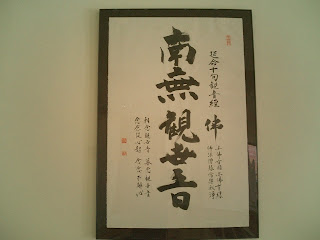 延命十句観音經
南無觀世音
佛
与佛有因与佛有縁
佛法僧縁常楽我浄
朝念観世音暮念観世音
念念従心起念念不離心